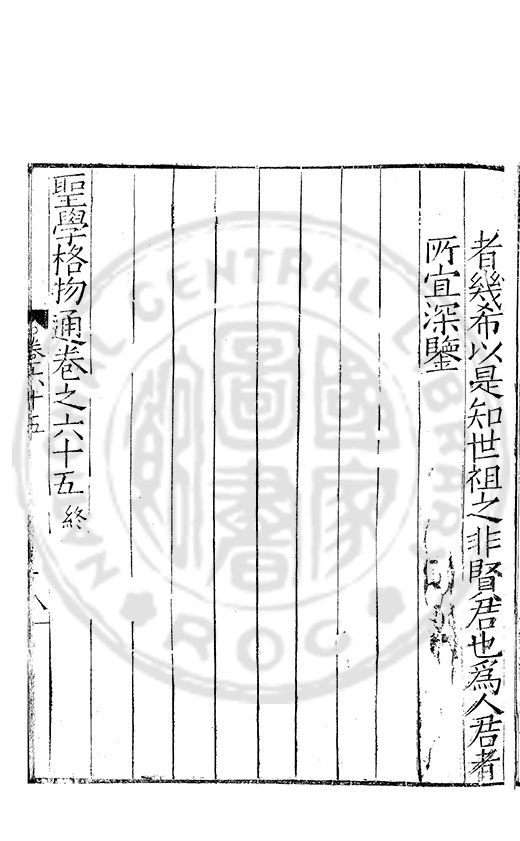 者幾希以是知世祖之非賢君也爲人君者
所宜深鑒
聖學格物通卷之六十五 終
卷六十五
NATIONAL CENTRAL LIBRARY
ROC
國家圖書館